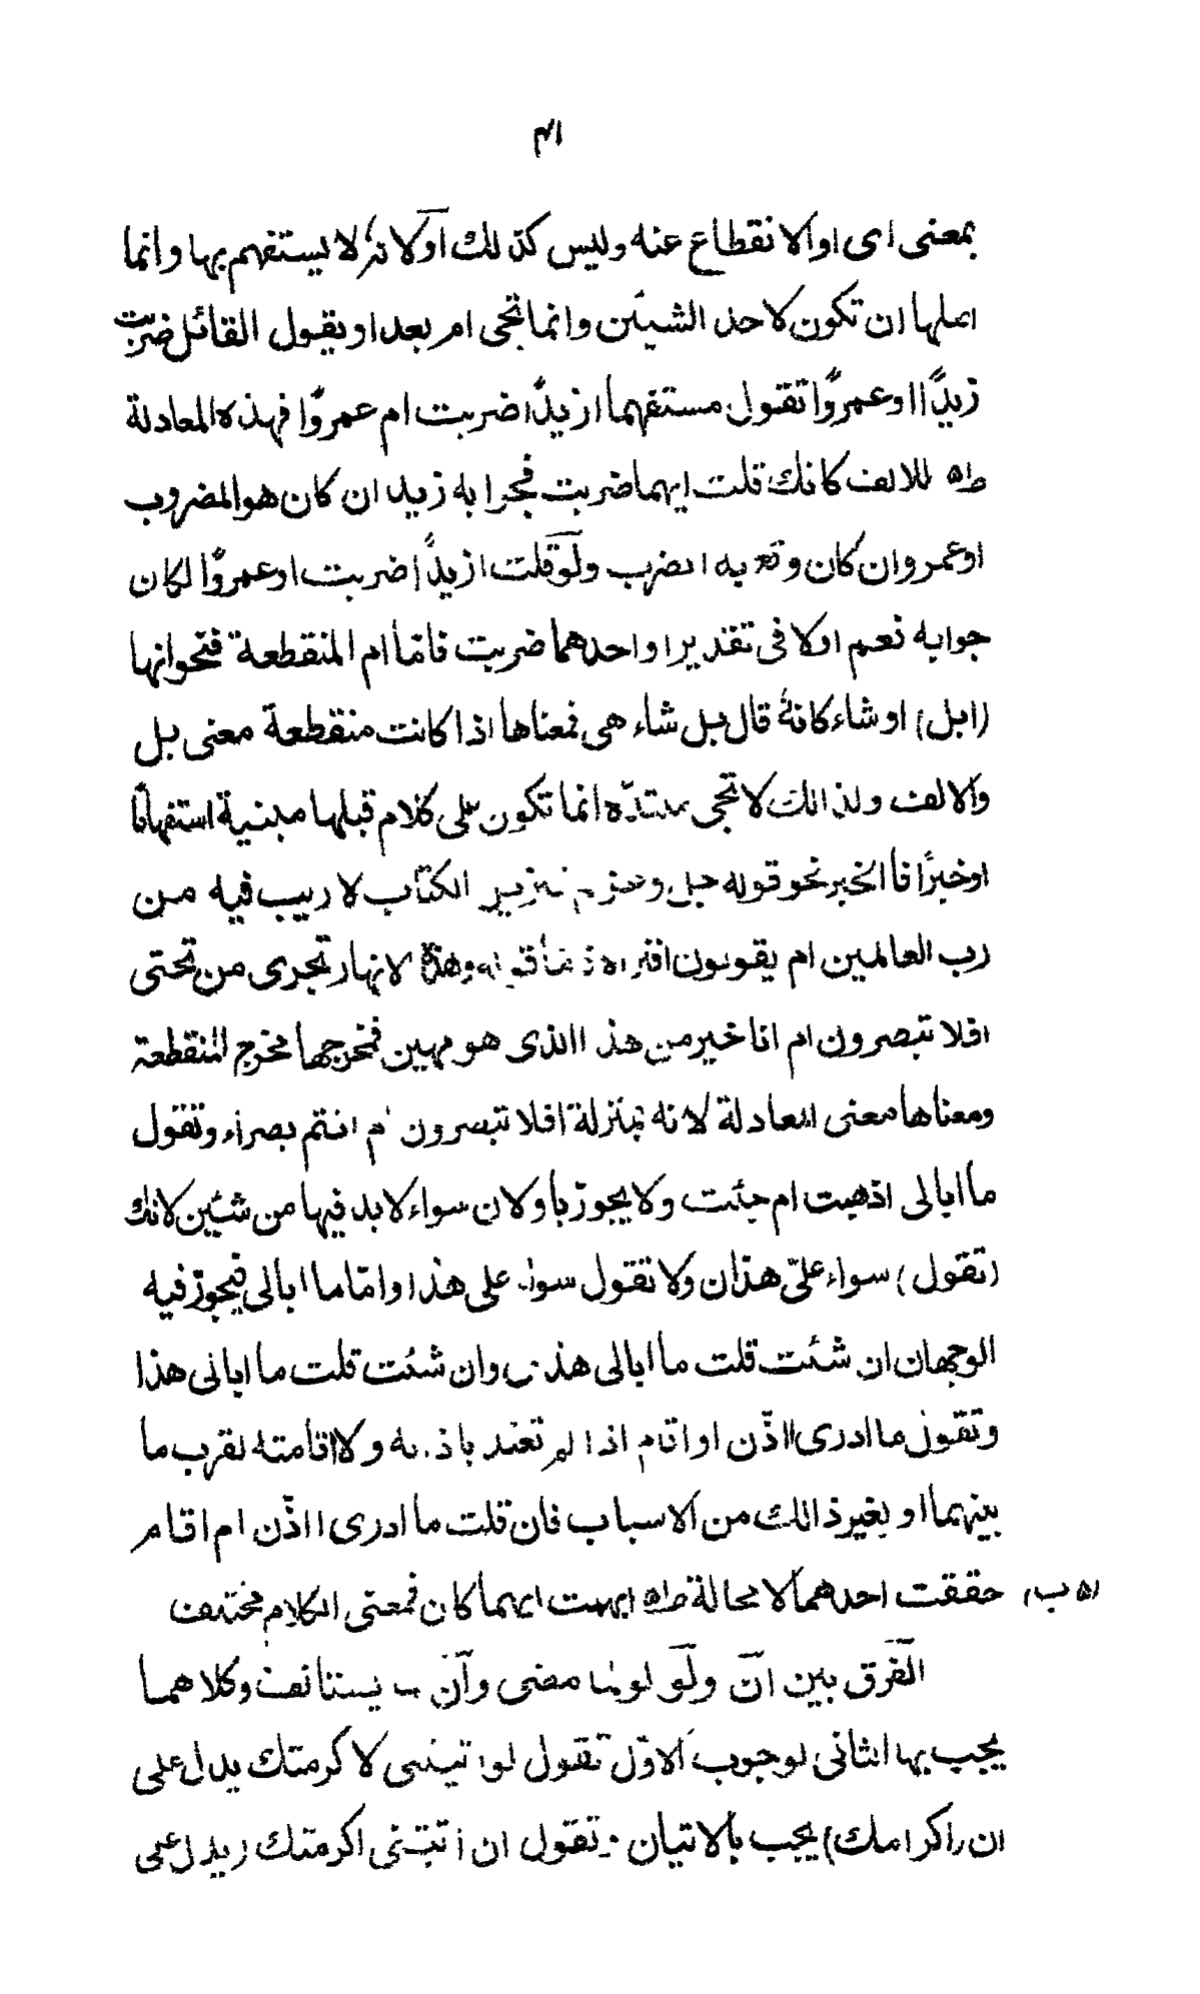 ٤١
بمعنى اى او الانقطاع عنه وليس كذلك او لانه لا يستفهم بها وانما
اصلها ان تكون لاحد الشيئين وانما تجى ام بعد او يقول القائل ضربت
زيدًا او عمروًا تقول مستفهما ازيدًا ضربت ام عمروًا فهذه المعادلة
للالف كانك قلت ايهما ضربت فجوابه زيد ان كان هو المضروب
او عمرو ان كان وقع به الضرب ولو قلت ازيدًا ضربت او عمروًا لكان
جوابه نعم او لا فى تقدير ا واحدهما ضربت فاما ام المنقطعة فنحو انها
(ابل) او شاء كانه قال بل شاء هى فمعناها اذا كانت منقطعة معنى بل
والالف ولذالك لا تجى مبتدّه انما تكون على كلام قبلها مبنية استفهامًا
او خبرًا فالخبر نحو قوله جل وعز الكتاب لا ريب فيه من
رب العالمين ام يقولون افتراه وهذه الانهار تجرى من تحتى
افلا تبصرون ام انا خير من هذا الذى هو مهين فمخرجها مخرج المنقطعة
ومعناها معنى المعادلة لانه بمنزلة افلا تبصرون ام انتم بصراء وتقول
ما ابالى اذهبت ام جئت ولا يجوز باو لان سواء لا بد فيها من شئين لانك
(تقول) سواء علىّ هذان ولا تقول سواء على هذا وامّا ما ابالى فيجوز فيه
الوجهان ان شئت قلت ما ابالى هذين وان شئت قلت ما ابالى هذا
وتقول ما ادرى ااذّن او اقام اذا لم تعتد باذانه ولا اقامته لقرب ما
بينهما او بغير ذالك من الاسباب فان قلت ما ادرى ااذّن ام اقام
(٥ ب) حققت احدهما لا محالة ابهمت ايهما كان فمعنى الكلام مختلف
الفرق بين ان ولو لو لما مضى وان لما يستانف وكلاهما
يجب بها الثانى لوجوب الاوّل تقول لو اتيتنى لاكرمتك يدل على
ان (اكرامك) يجب بالاتيان وتقول ان اتيتنى اكرمتك يدل على